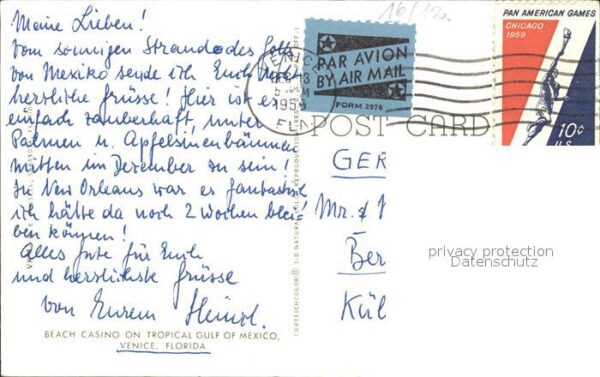 Meine Lieben!
Vom sonnigen Strande des Golfs
von Mexiko sende ich Euch
herzliche Grüsse! Hier ist es
einfach zauberhaft, unter
Palmen u. Apfelsinenbäumen
mitten im Dezember zu sein!
In New Orleans war es fantastisch
ich hätte da noch 2 Wochen blei-
ben können!
Alles Gute für Euch
und herzlichste Grüsse
von Eurem Heinz.
BEACH CASINO ON TROPICAL GULF OF MEXICO,
VENICE, FLORIDA
16/12.
PAR AVION
BY AIR MAIL
FORM 2978
PAN AMERICAN GAMES
CHICAGO
1959
10¢
U.S.
VENICE
DEC
1959
FLA
POST CARD
GER
Mr. &
Ber
Kül
privacy protection
Datenschutz
CURTEICHCOLOR® 3-D NATURAL COLOR REPRODUCTION